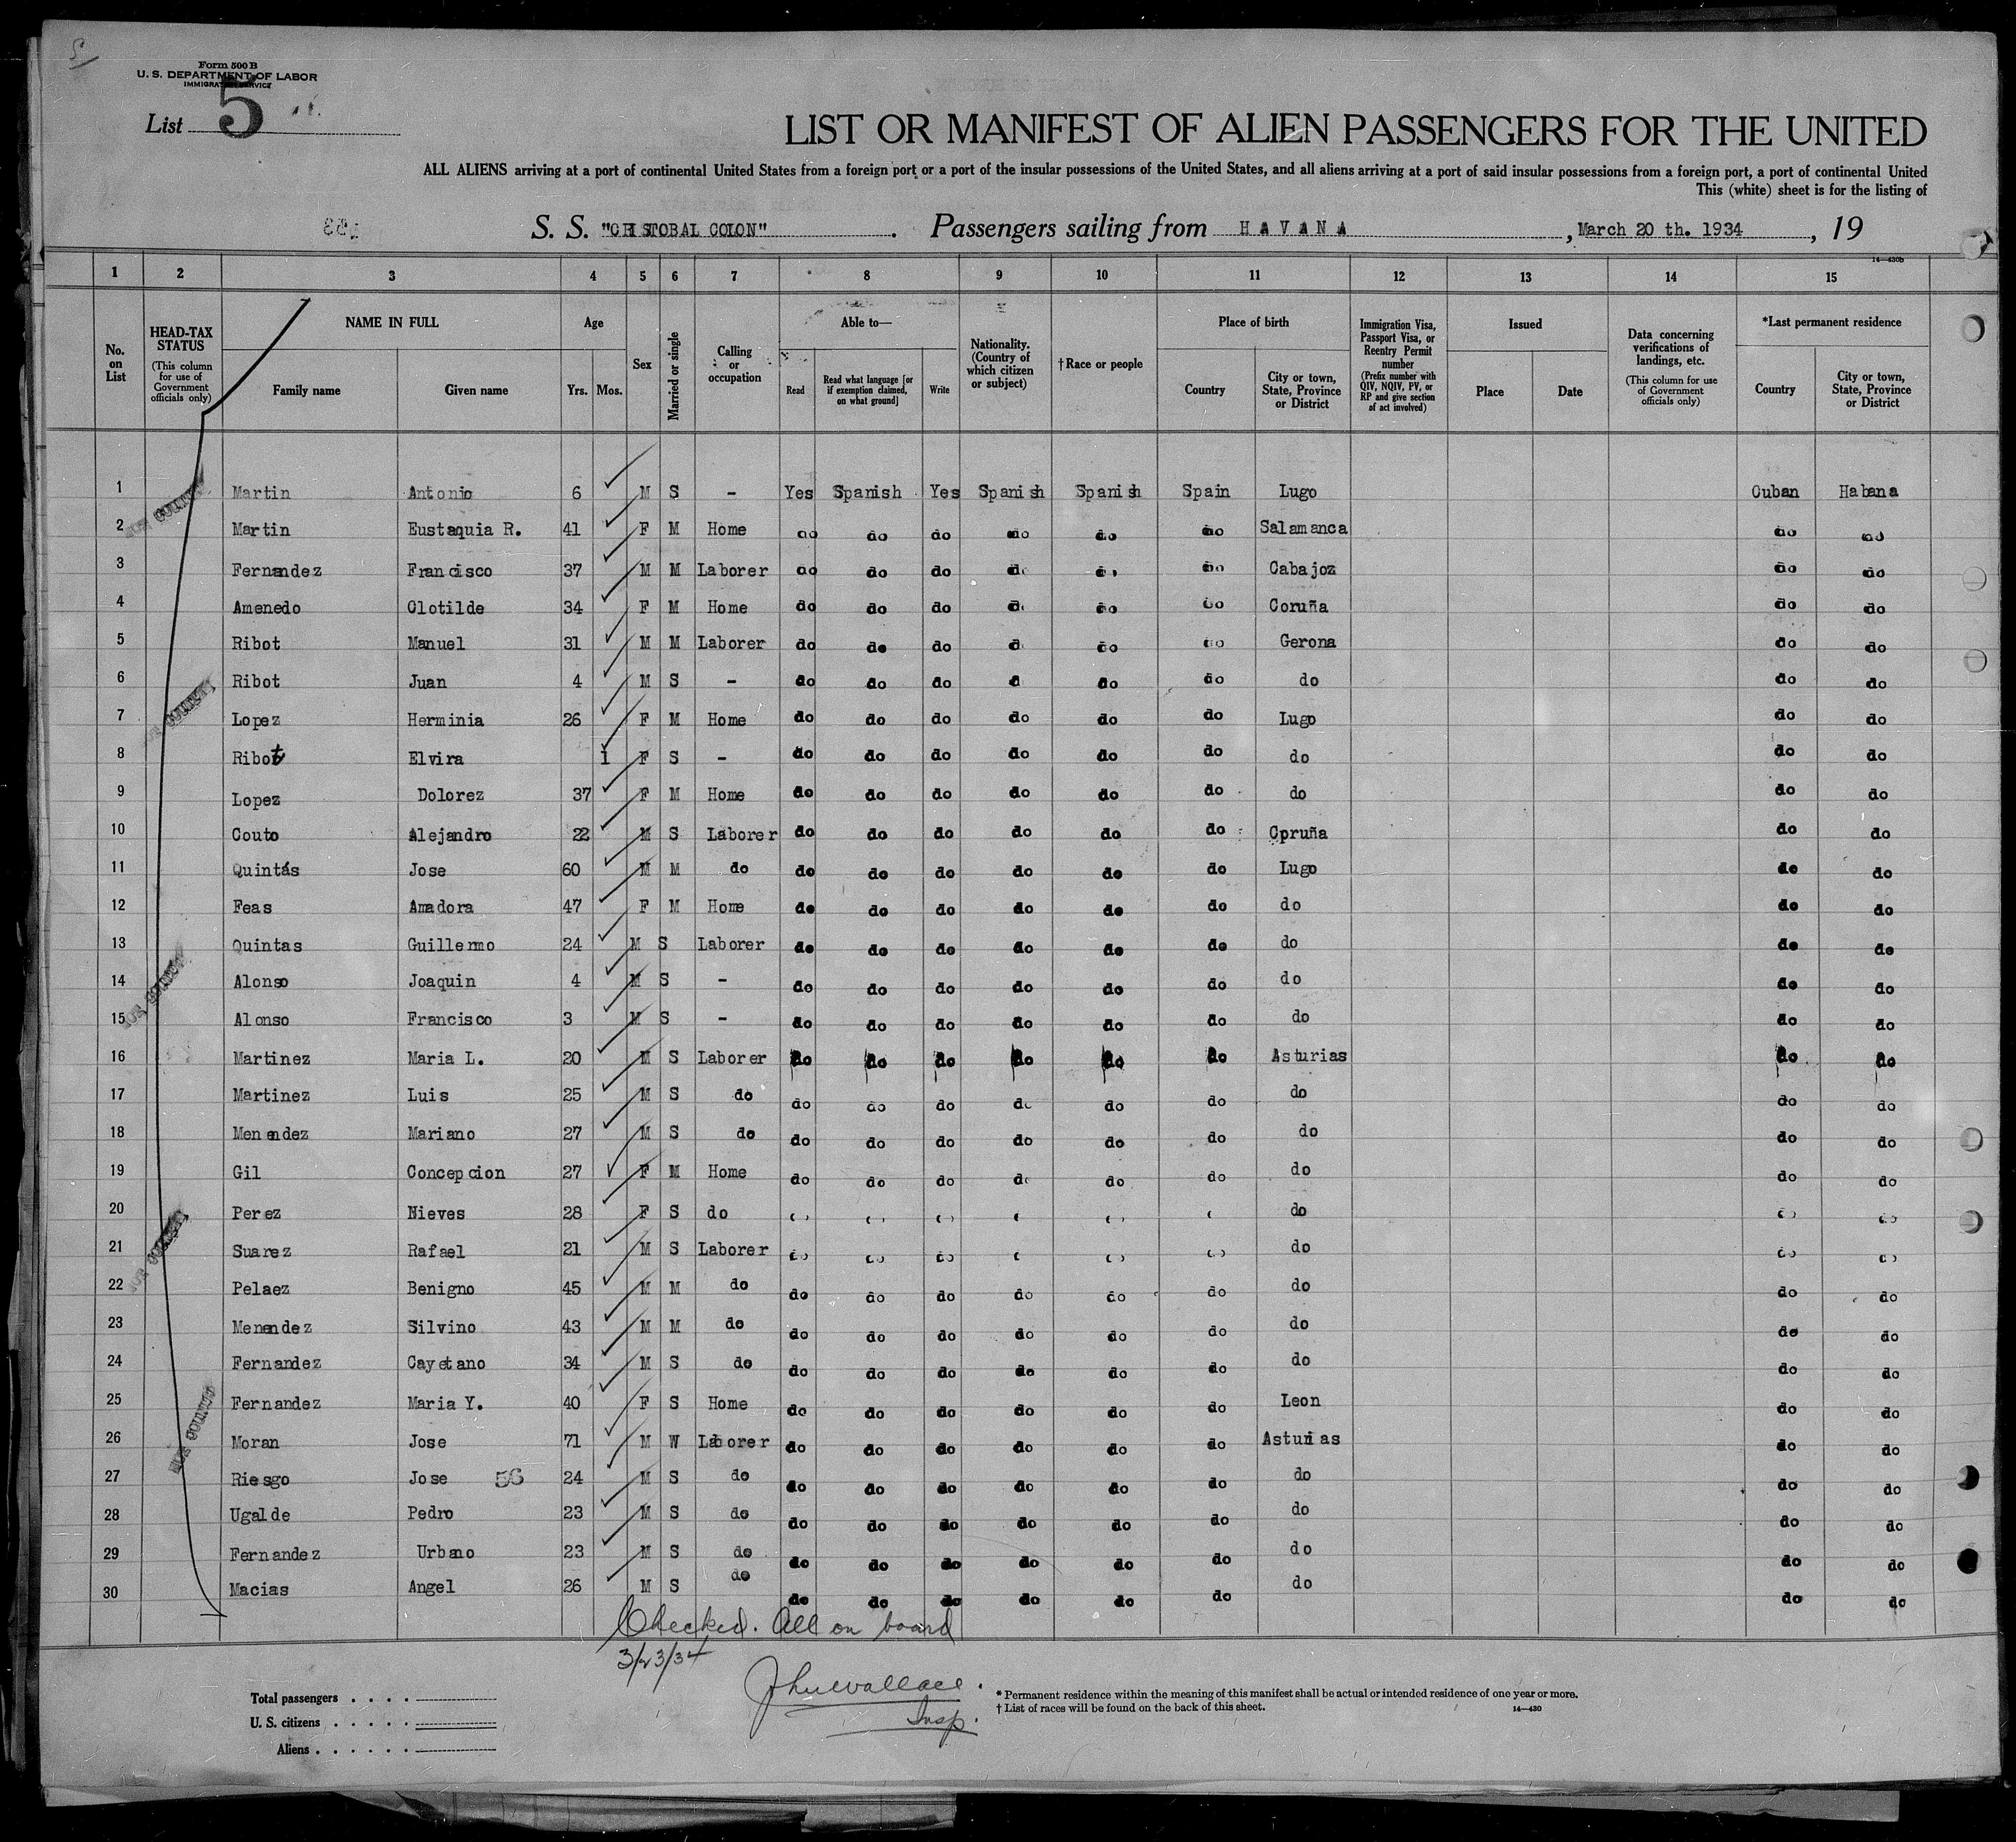 Form 500 B
U. S. DEPARTMENT OF LABOR
IMMIGRATION SERVICE
List 5
LIST OR MANIFEST OF ALIEN PASSENGERS FOR THE UNITED
ALL ALIENS arriving at a port of continental United States from a foreign port or a port of the insular possessions of the United States, and all aliens arriving at a port of said insular possessions from a foreign port, a port of continental United
This (white) sheet is for the listing of
S. S. "CRISTOBAL COLON" . Passengers sailing from HAVANA , March 20 th. 1934 , 19
14—430b
1 2 3 4 5 6 7 8 9 10 11 12 13 14 15
No. on List
HEAD-TAX STATUS
(This column for use of Government officials only)
NAME IN FULL
Family name Given name
Age
Yrs. Mos.
Sex
Married or single
Calling or occupation
Able to—
Read
Read what language [or if exemption claimed, on what ground]
Write
Nationality. (Country of which citizen or subject)
† Race or people
Place of birth
Country
City or town, State, Province or District
Immigration Visa, Passport Visa, or Reentry Permit number
(Prefix number with QIV, NQIV, PV, or RP and give section of act involved)
Issued
Place Date
Data concerning verifications of landings, etc.
(This column for use of Government officials only)
*Last permanent residence
Country
City or town, State, Province or District
1 Martin Antonio 6 M S - Yes Spanish Yes Spanish Spanish Spain Lugo Cuban Habana
2 Martin Eustaquia R. 41 F M Home do do do do do do Salamanca do do
3 Fernandez Francisco 37 M M Laborer do do do do do do Cabajoz do do
4 Amenedo Clotilde 34 F M Home do do do do do do Coruña do do
5 Ribot Manuel 31 M M Laborer do do do do do do Gerona do do
6 Ribot Juan 4 M S - do do do do do do do do do
7 Lopez Herminia 26 F M Home do do do do do do Lugo do do
8 Ribot Elvira 1 F S - do do do do do do do do do
9 Lopez Dolorez 37 F M Home do do do do do do do do do
10 Couto Alejandro 22 M S Laborer do do do do do do Cpruña do do
11 Quintás Jose 60 M M do do do do do do do Lugo do do
12 Feas Amadora 47 F M Home do do do do do do do do do
13 Quintas Guillermo 24 M S Laborer do do do do do do do do do
14 Alonso Joaquin 4 M S - do do do do do do do do do
15 Alonso Francisco 3 M S - do do do do do do do do do
16 Martinez Maria L. 20 M S Laborer do do do do do do Asturias do do
17 Martinez Luis 25 M S do do do do do do do do do do
18 Menendez Mariano 27 M S do do do do do do do do do do
19 Gil Concepcion 27 F M Home do do do do do do do do do
20 Perez Nieves 28 F S do do
21 Suarez Rafael 21 M S Laborer do do do do do do do do
22 Pelaez Benigno 45 M M do do do do do do do do do do
23 Menendez Silvino 43 M M do do do do do do do do do do
24 Fernandez Cayetano 34 M S do do do do do do do do do do
25 Fernandez Maria Y. 40 F S Home do do do do do do Leon do do
26 Moran Jose 71 M W Laborer do do do do do do Asturias do do
27 Riesgo Jose 56 24 M S do do do do do do do do do do
28 Ugalde Pedro 23 M S do do do do do do do do do do
29 Fernandez Urbano 23 M S do do do do do do do do do do
30 Macias Angel 26 M S do do do do do do do do do do
Checked. All on board
3/23/34
Jhn Wallace.
Insp.
Total passengers . . . .
U. S. citizens . . . . .
Aliens . . . . . .
* Permanent residence within the meaning of this manifest shall be actual or intended residence of one year or more.
† List of races will be found on the back of this sheet.
14—430